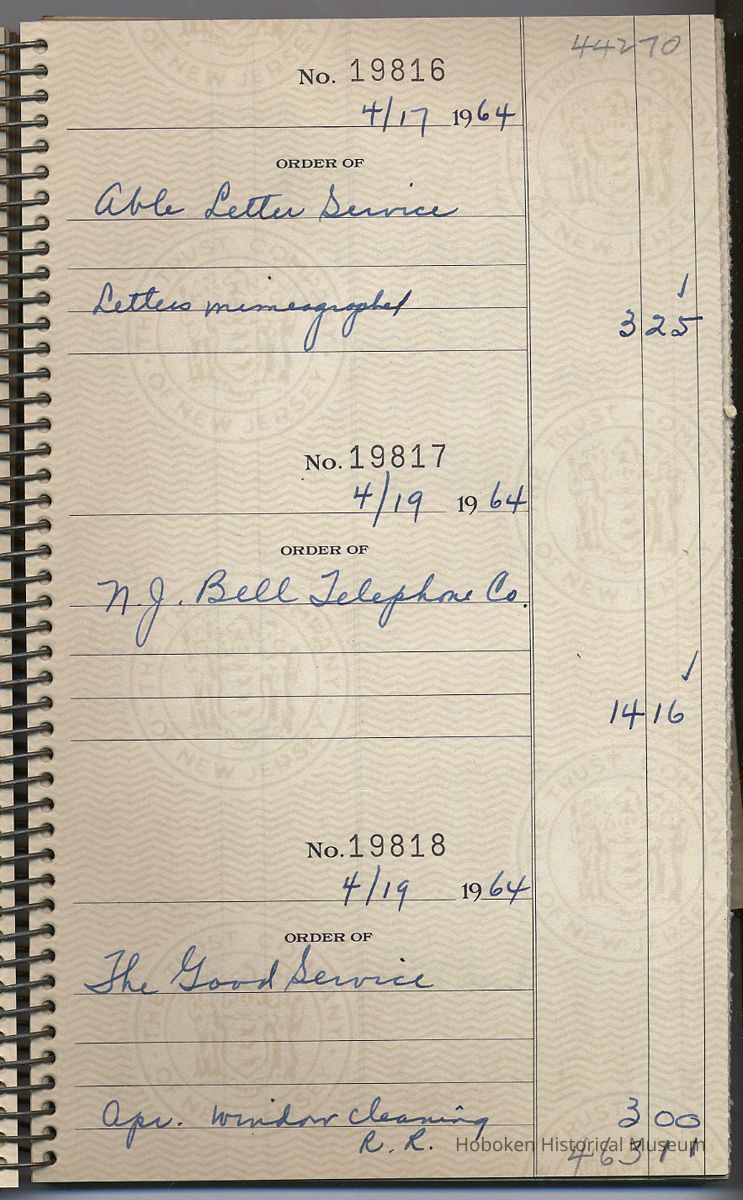 44270
No. 19816
4/17 1964
ORDER OF
Able Letter Service
Letters mimeographed
325
No. 19817
4/19 1964
ORDER OF
N.J. Bell Telephone Co.
1416
No. 19818
4/19 1964
ORDER OF
The Good Service
Apr. window cleaning
300
R. R.
46311
Hoboken Historical Museum
THE TRUST COMPANY OF NEW JERSEY